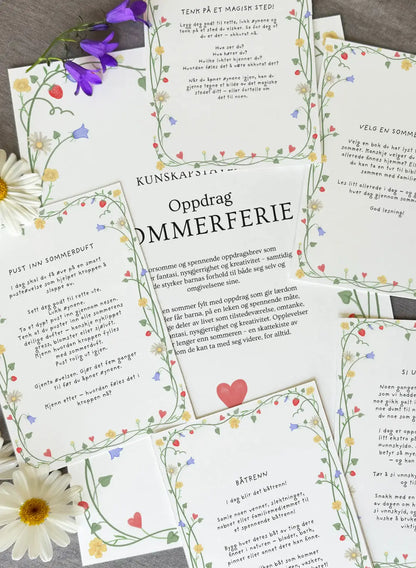 TENK PÅ ET MAGISK STED!
Legg deg godt til rette, lukk øynene og
tenk på et sted du elsker. Se for deg at
du er der – akkurat nå.
Hva ser du?
Hva hører du?
Hvilke lukter kjenner du?
Hvordan føles det å være akkurat der?
Når du åpner øynene igjen, kan du
gjerne tegne et bilde av det magiske
stedet ditt – eller fortelle om
det til noen.
VELG EN SOMM
Velg en bok du har lyst
sommer. Kanskje velger
allerede finnes hjemme?
du kan ta en tur til bibl
sammen med familie
Les litt allerede i dag – og
hver dag gjennom somm
God lesing!
KUNSKAPSTA
Oppdrag
OMMERFERIE
orsomme og spennende oppdragsbrev som
er fantasi, nysgjerrighet og kreativitet – samtidig
de styrker barnas forhold til både seg selv og
omgivelsene sine.
en sommer fylt med oppdrag som gir lærdom
er får barna, på en leken og spennende måte,
ge deler av livet som tilstedeværelse, omtanke,
ntasi, nysgjerrighet og kreativitet. Opplevelser
r lenger enn sommeren – en skattekiste av
om de kan ta med seg videre, for alltid.
PUST INN SOMMERDUFT
I dag skal du få øve på en smart
pusteøvelse som hjelper kroppen å
slappe av.
Sett deg godt til rette ute.
Lukk øynene.
Ta et dypt pust inn gjennom nesen.
Tenk at du puster inn alle sommerens
deilige dufter – kanskje nyklippet
gress, blomster eller sjøluft.
Kjenn hvordan kroppen fylles
med sommerduft.
Pust rolig ut igjen.
Gjenta øvelsen. Gjør det fem ganger
til før du åpner øynene.
Kjenn etter – hvordan føles det i
kroppen nå?
BÅTRENN
I dag blir det båtrenn!
Samle noen venner, slektninger,
naboer eller familiemedlemmer til
et spennende båtrenn!
Bygg hver deres båt av ting dere
finner i naturen – blader, bark,
pinner eller annet dere har funnet.
SI U
Noen ganger
som vi hadde
noe gikk galt i
en dum måte
noe vondt
I dag er op
om det er
betyr så mye
– og kan
Tør å si unnsky
og til
Snakk med en
av dagen om hv
å si unnskyld, og
huske å bruke
viktig